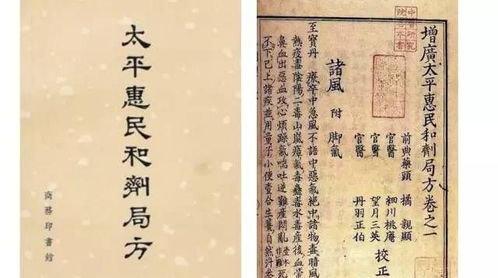 太平惠民和劑局方
商務印書館
增廣太平惠民和劑局方卷之一
前典藥頭 橘 親顯
官醫 細川桃庵
官醫 望月三英
官醫 丹羽正伯 校正
諸風 附 脚氣
至寶丹 療卒中急風不語中惡氣絕中諸物毒暗風
熱疫毒陰陽二毒山嵐瘴氣毒蠱毒水毒產後血暈
鼻血出惡血攻心煩躁氣喘吐逆難產悶亂死
不下已上諸疾並用童子小便一合生薑自然汁